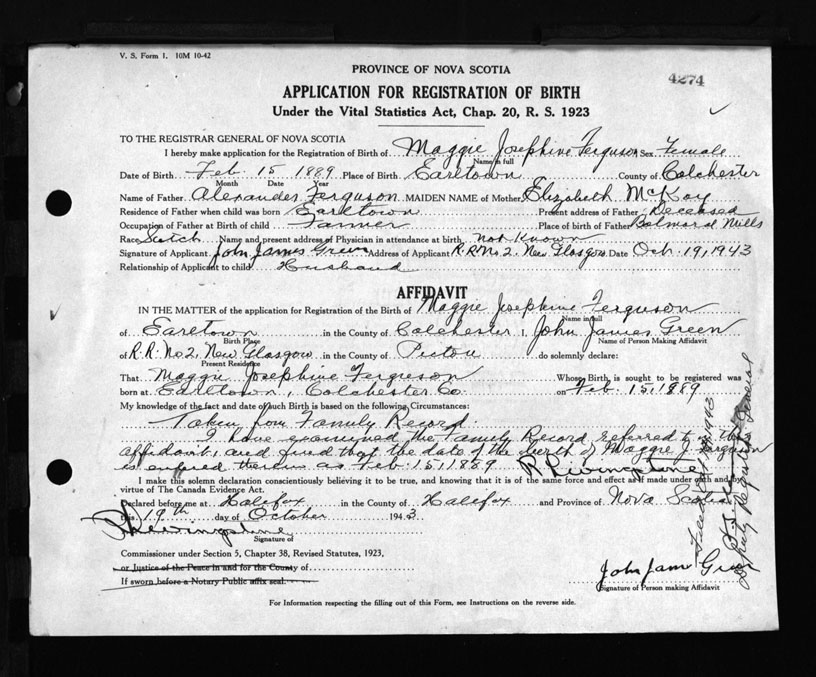 V. S. Form 1. 10M 10-42
PROVINCE OF NOVA SCOTIA
4274
APPLICATION FOR REGISTRATION OF BIRTH
Under the Vital Statistics Act, Chap. 20, R. S. 1923
TO THE REGISTRAR GENERAL OF NOVA SCOTIA
I hereby make application for the Registration of Birth of Maggie Josephine Ferguson Sex Female
Name in full
Date of Birth Feb 15 1889 Place of Birth Earltown County of Colchester
Month Date Year
Name of Father Alexander Ferguson MAIDEN NAME of Mother Elizabeth McKay
Residence of Father when child was born Earltown Present address of Father Deceased
Occupation of Father at Birth of child Farmer Place of birth of Father Balmoral Mills
Race Scotch Name and present address of Physician in attendance at birth not Known
Signature of Applicant John James Green Address of Applicant R.R. No 2. New Glasgow Date Oct. 19, 1943
Relationship of Applicant to child Husband
AFFIDAVIT
IN THE MATTER of the application for Registration of the Birth of Maggie Josephine Ferguson
Name in full
of Earltown in the County of Colchester I, John James Green
Birth Place Name of Person Making Affidavit
of R.R. No 2, New Glasgow in the County of Pictou do solemnly declare:
Present Residence
That Maggie Josephine Ferguson Whose Birth is sought to be registered was
born at Earltown, Colchester Co. on Feb. 15, 1889
My knowledge of the fact and date of such Birth is based on the following Circumstances:
Taken from Family Record.
I have examined the Family Record referred to in this
affidavit, and find that the date of the birth of Maggie J. Ferguson
is entered therein as Feb. 15, 1889 Livingstone
I make this solemn declaration conscientiously believing it to be true, and knowing that it is of the same force and effect as if made under oath and by
virtue of The Canada Evidence Act.
Declared before me at Halifax in the County of Halifax and Province of Nova Scotia
this 19th day of October 1943
Livingstone
Signature of
Commissioner under Section 5, Chapter 38, Revised Statutes, 1923,
or Justice of the Peace in and for the County of
If sworn before a Notary Public affix seal.
John James Green
Signature of Person making Affidavit
For Information respecting the filling out of this Form, see Instructions on the reverse side.
Deputy Registrar General